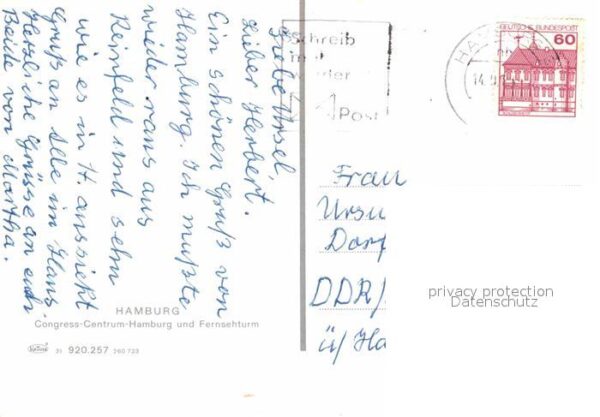 Liebe Ursel,
lieber Herbert.
Ein schönen Gruß von
Hamburg. Ich mußte
wieder raus aus
Reinfeld und sehn
wie es in H. aussieht
Gruß an alle im Haus.
Herzliche Grüsse an euch
Beide von Martha.
HAMBURG
Congress-Centrum-Hamburg und Fernsehturm
31 920.257 260 723
Schreib
mal
wieder
Post
DEUTSCHE BUNDESPOST
60
Frau
Ursu
Dorf
DDR/
ü/Ha
privacy protection
Datenschutz